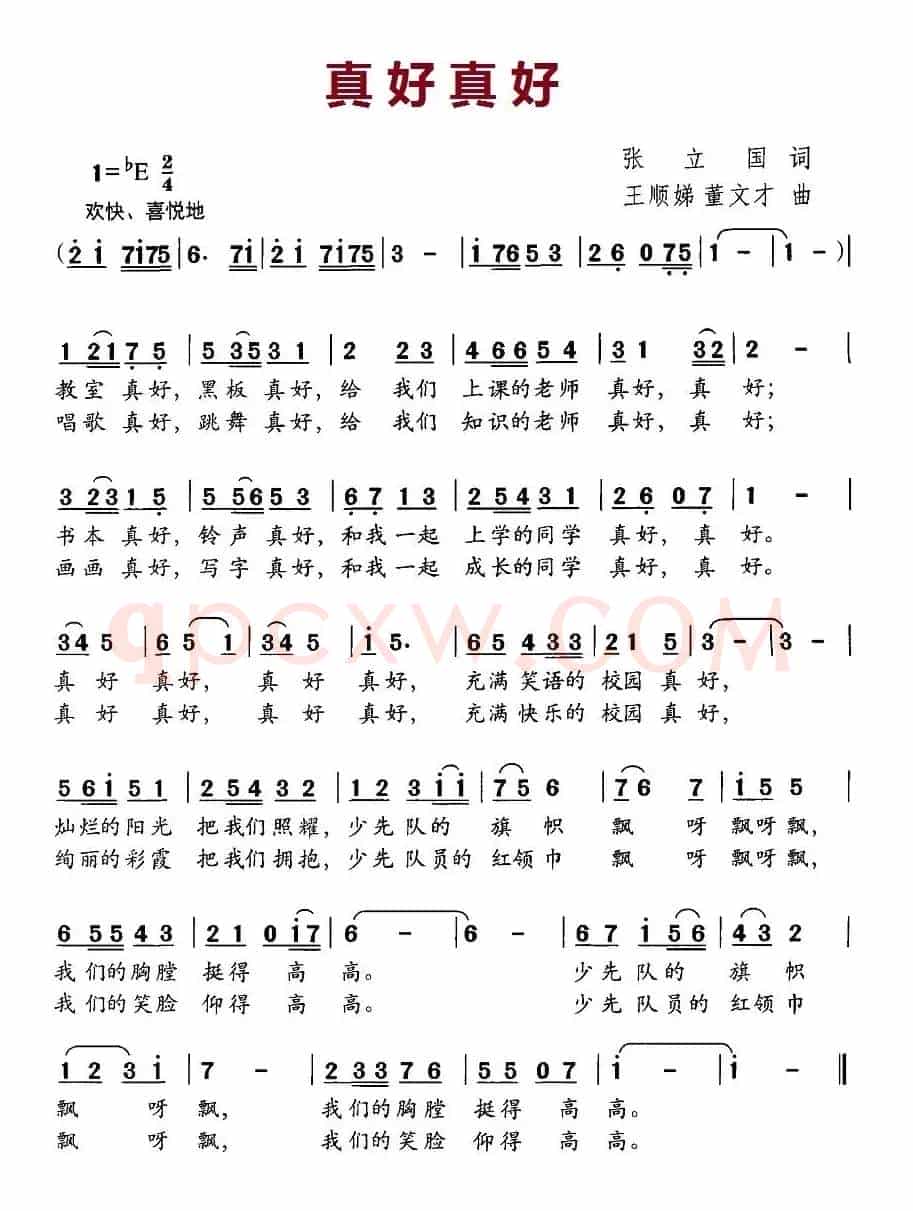 真好真好
张 立 国 词
1=♭E 2/4
王顺娣 董文才 曲
欢快、喜悦地
(2̇ 1̇ 7 1̇ 7 5 | 6. 7 1̇ | 2̇ 1̇ 7 1̇ 7 5 | 3 - | 1̇ 7 6 5 3 | 2 6̣ 0 7̣ 5̣ | 1 - | 1 - )|
1 2 1 7̣ 5̣ | 5 3 5 3 1 | 2 2 3 | 4 6 6 5 4 | 3 1 3 2 | 2 - |
教室 真好, 黑板 真好, 给 我们 上课的老师 真好, 真 好;
唱歌 真好, 跳舞 真好, 给 我们 知识的老师 真好, 真 好;
3 2 3 1 5̣ | 5 5 6 5 3 | 6̣ 7̣ 1 3 | 2 5 4 3 1 | 2 6̣ 0 7̣ | 1 - |
书本 真好, 铃声 真好, 和我一起 上学的同学 真好, 真 好。
画画 真好, 写字 真好, 和我一起 成长的同学 真好, 真 好。
qpcxw.COM
3 4 5 | 6 5 1 | 3 4 5 | 1̇ 5. | 6 5 4 3 3 | 2 1 5̣ | 3 - | 3 - |
真 好 真好, 真 好 真好, 充满 笑语的 校园 真好,
真 好 真好, 真 好 真好, 充满 快乐的 校园 真好,
5 6 1̇ 5 1 | 2 5 4 3 2 | 1 2 3 1̇ 1̇ | 7 5 6 | 7 6 7 | 1̇ 5 5 |
灿烂的 阳光 把我们 照耀, 少先 队的 旗 帜 飘 呀 飘呀飘,
绚丽的 彩霞 把我们 拥抱, 少先 队员的 红领 巾 飘 呀 飘呀飘,
6 5 5 4 3 | 2 1 0 1̇ 7 | 6 - | 6 - | 6 7 1̇ 5 6 | 4 3 2 |
我们的胸膛 挺得 高 高。 少先 队的 旗 帜
我们的笑脸 仰得 高 高。 少先 队员的 红领巾
1 2 3 1̇ | 7 - | 2 3 3 7 6 | 5 5 0 7 | 1̇ - | 1̇ - ‖
飘 呀 飘, 我们的胸膛 挺得 高 高。
飘 呀 飘, 我们的笑脸 仰得 高 高。